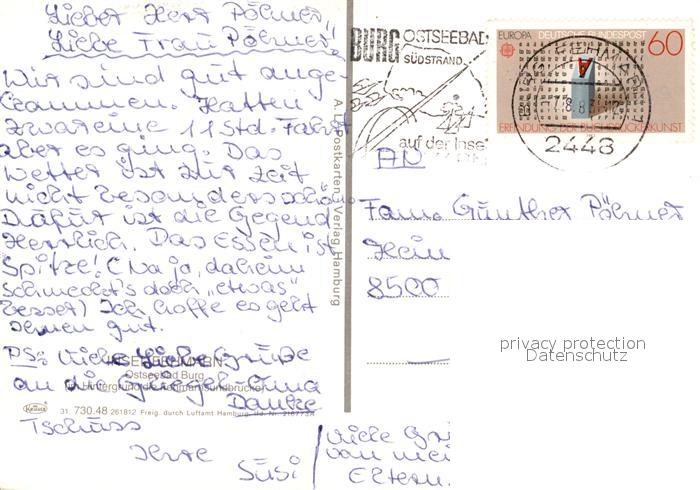 Lieber Herr Pölmer,
Liebe Frau Pölmer,
Wir sind gut ange-
kommen. Hatten
zwar eine 11 Std. Fahrt
aber es ging. Das
Wetter ist zur Zeit
nicht besonders schön
Dafür ist die Gegend
Herrlich. Das Essen ist
Spitze! (Na ja, daheim
schmeckt's doch „etwas"
besser) Ich hoffe es geht
ihnen gut.
PS: Viele liebe Grüße
an die
Danke
Tschüss
Ihre
Süsi
Viele Gr
von mei
Eltern.
INSEL FEHMARN
Ostseebad Burg
Im Hintergrund die Fehmarnsundbrücke
Krüger
31. 730.48 261812 Freig. durch Luftamt Hamburg, lfd. Nr.
Postkarten Verlag, Hamburg
BURG OSTSEEBAD
SÜDSTRAND
auf der Insel
EUROPA DEUTSCHE BUNDESPOST 60
A
ERFINDUNG DER BUCHDRUCKERKUNST
2448
AN
Fam. Günther Pölmer
Heim
8500
privacy protection
Datenschutz